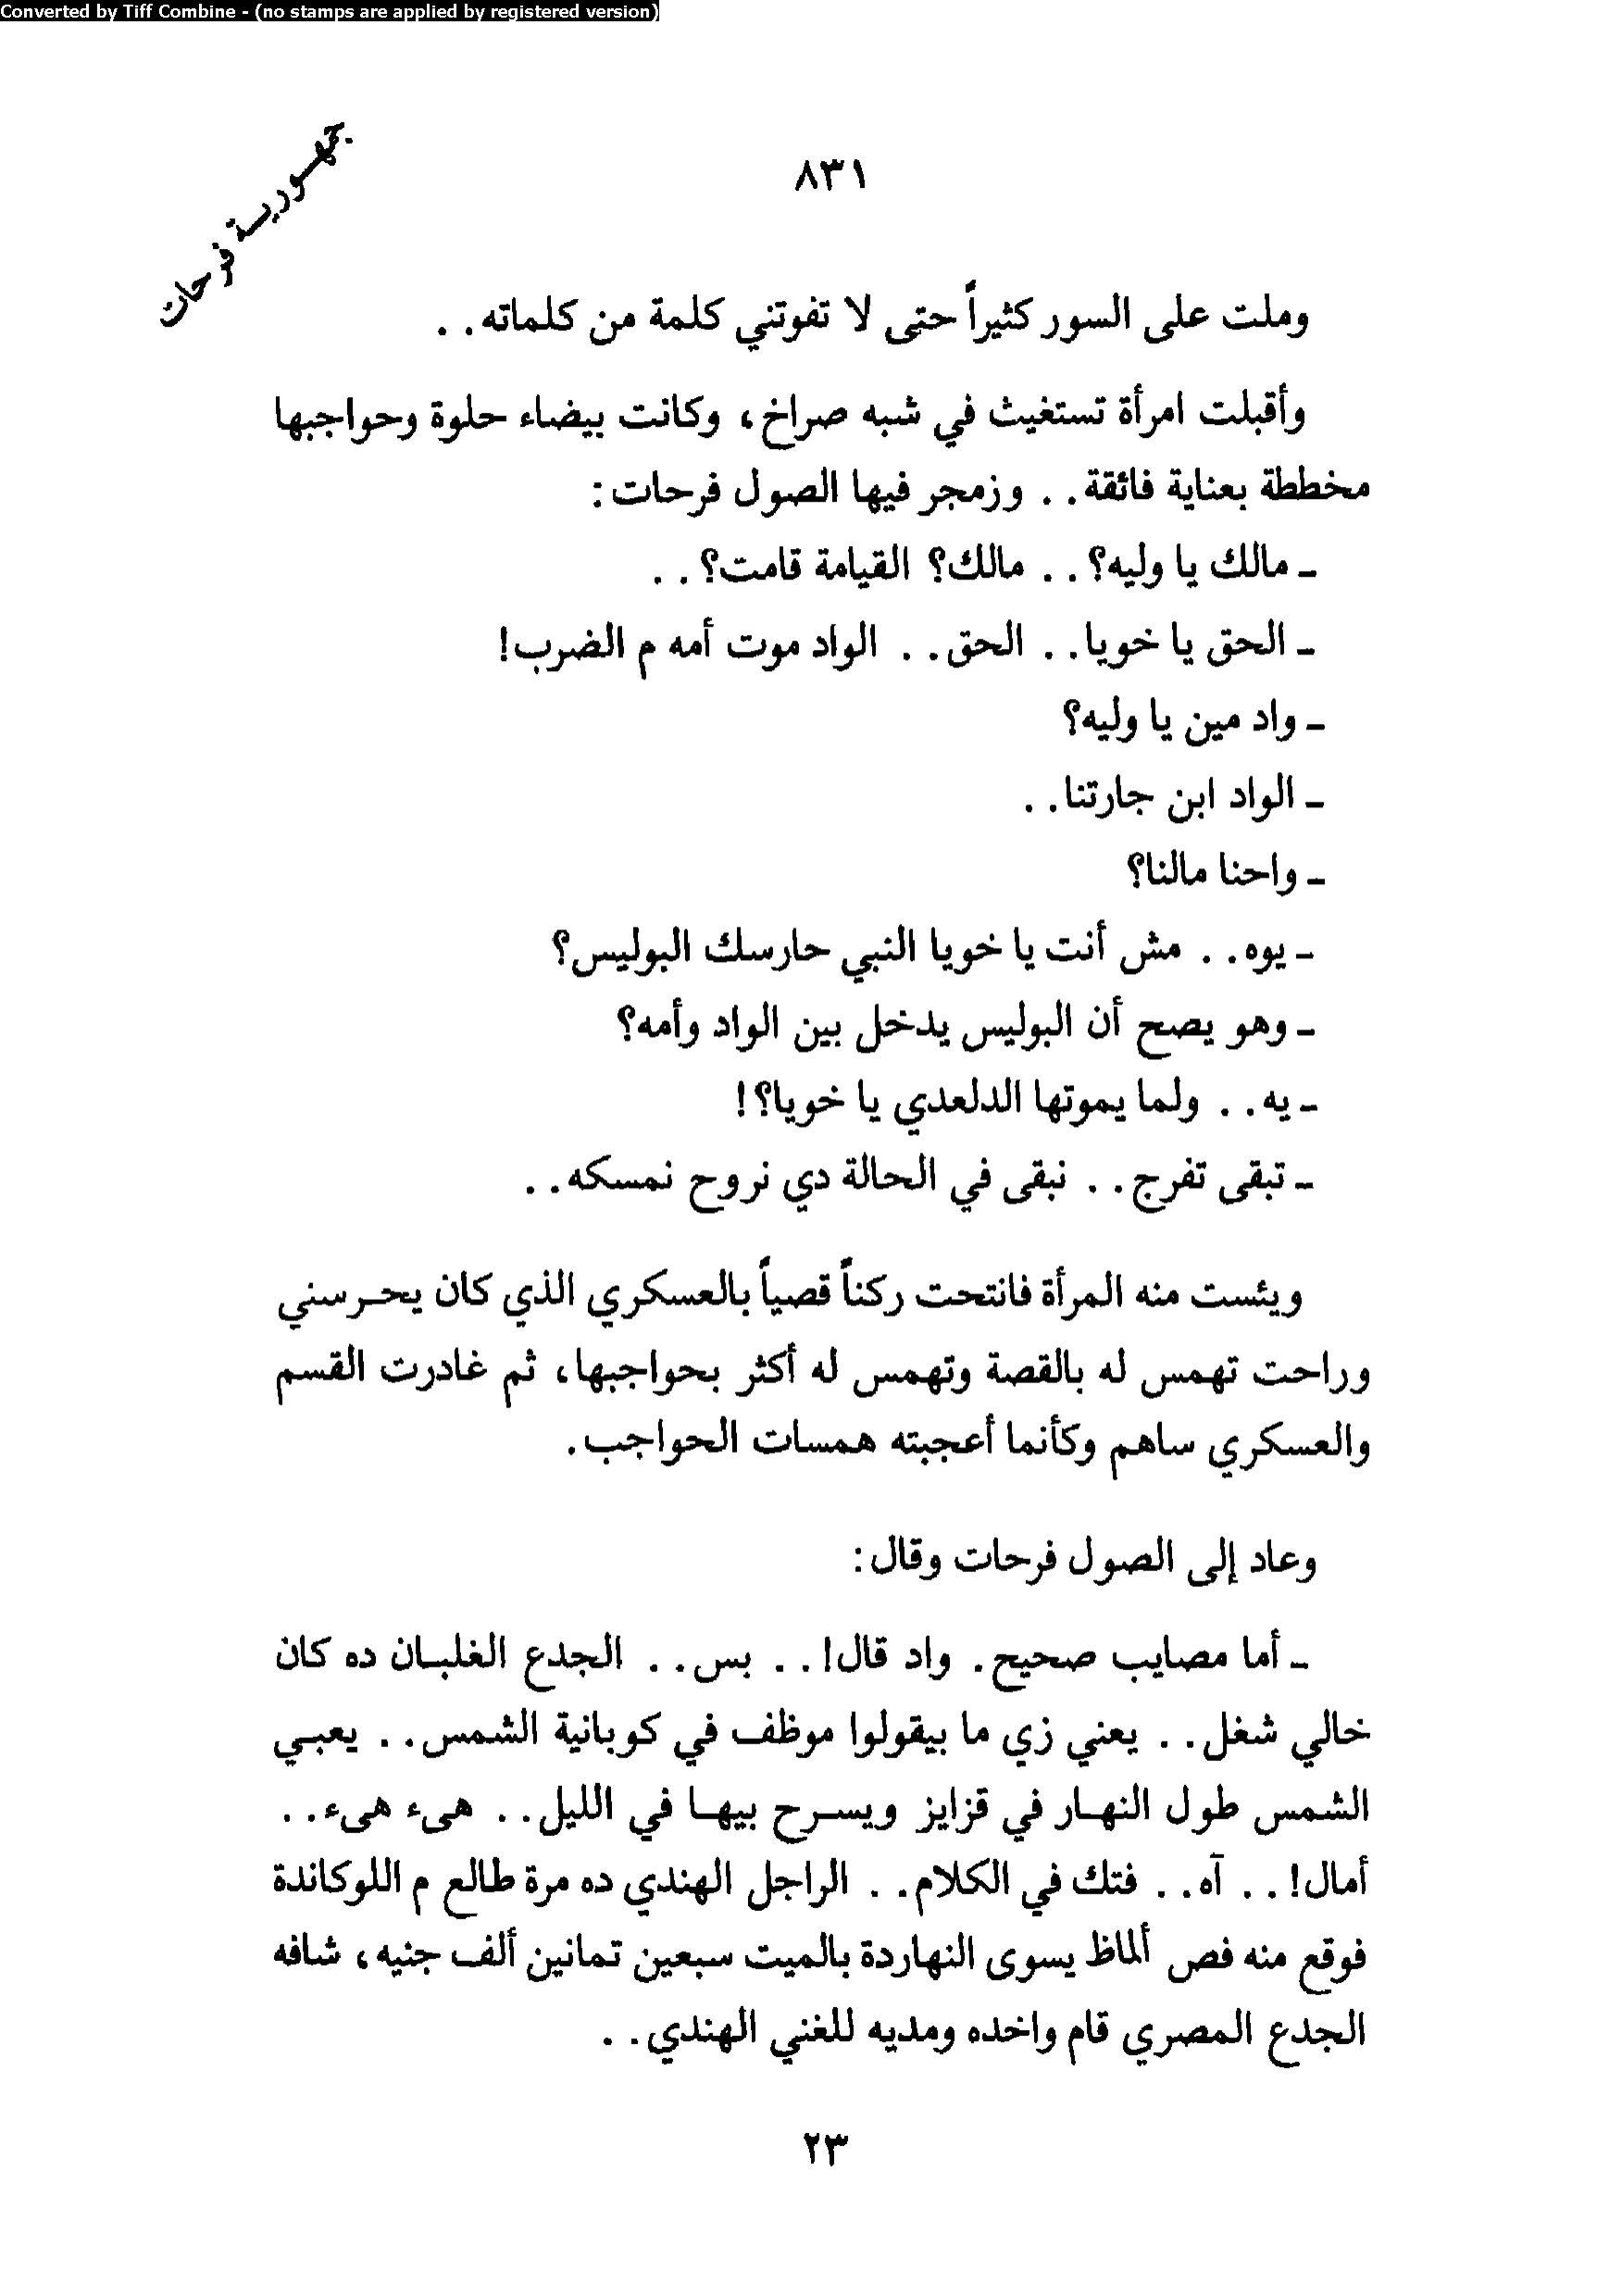 Converted by Tiff Combine - (no stamps are applied by registered version)
جمهورية فرحات
٨٣١
وملت على السور كثيراً حتى لا تفوتني كلمة من كلماته..
وأقبلت امرأة تستغيث في شبه صراخ، وكانت بيضاء حلوة وحواجبها
مخططة بعناية فائقة.. وزمجر فيها الصول فرحات:
ـ مالك يا وليه؟.. مالك؟ القيامة قامت؟..
ـ الحق يا خويا.. الحق.. الواد موت أمه م الضرب!
ـ واد مين يا وليه؟
ـ الواد ابن جارتنا..
ـ واحنا مالنا؟
ـ يوه.. مش أنت يا خويا النبي حارسك البوليس؟
ـ وهو يصح أن البوليس يدخل بين الواد وأمه؟
ـ يه.. ولما يموتها الدلعدي يا خويا؟!
ـ تبقى تفرج.. نبقى في الحالة دي نروح نمسكه..
ويئست منه المرأة فانتحت ركناً قصياً بالعسكري الذي كان يحرسني
وراحت تهمس له بالقصة وتهمس له أكثر بحواجبها، ثم غادرت القسم
والعسكري ساهم وكأنما أعجبته همسات الحواجب.
وعاد إلى الصول فرحات وقال:
ـ أما مصايب صحيح. واد قال!.. بس.. الجدع الغلبان ده كان
خالي شغل.. يعني زي ما بيقولوا موظف في كوبانية الشمس.. يعبي
الشمس طول النهار في قزايز ويسرح بيها في الليل.. هىء هىء..
أمال!.. آه.. فتك في الكلام.. الراجل الهندي ده مرة طالع م اللوكاندة
فوقع منه فص ألماظ يسوى النهاردة بالميت سبعين تمانين ألف جنيه، شافه
الجدع المصري قام واخده ومديه للغني الهندي..
٢٣